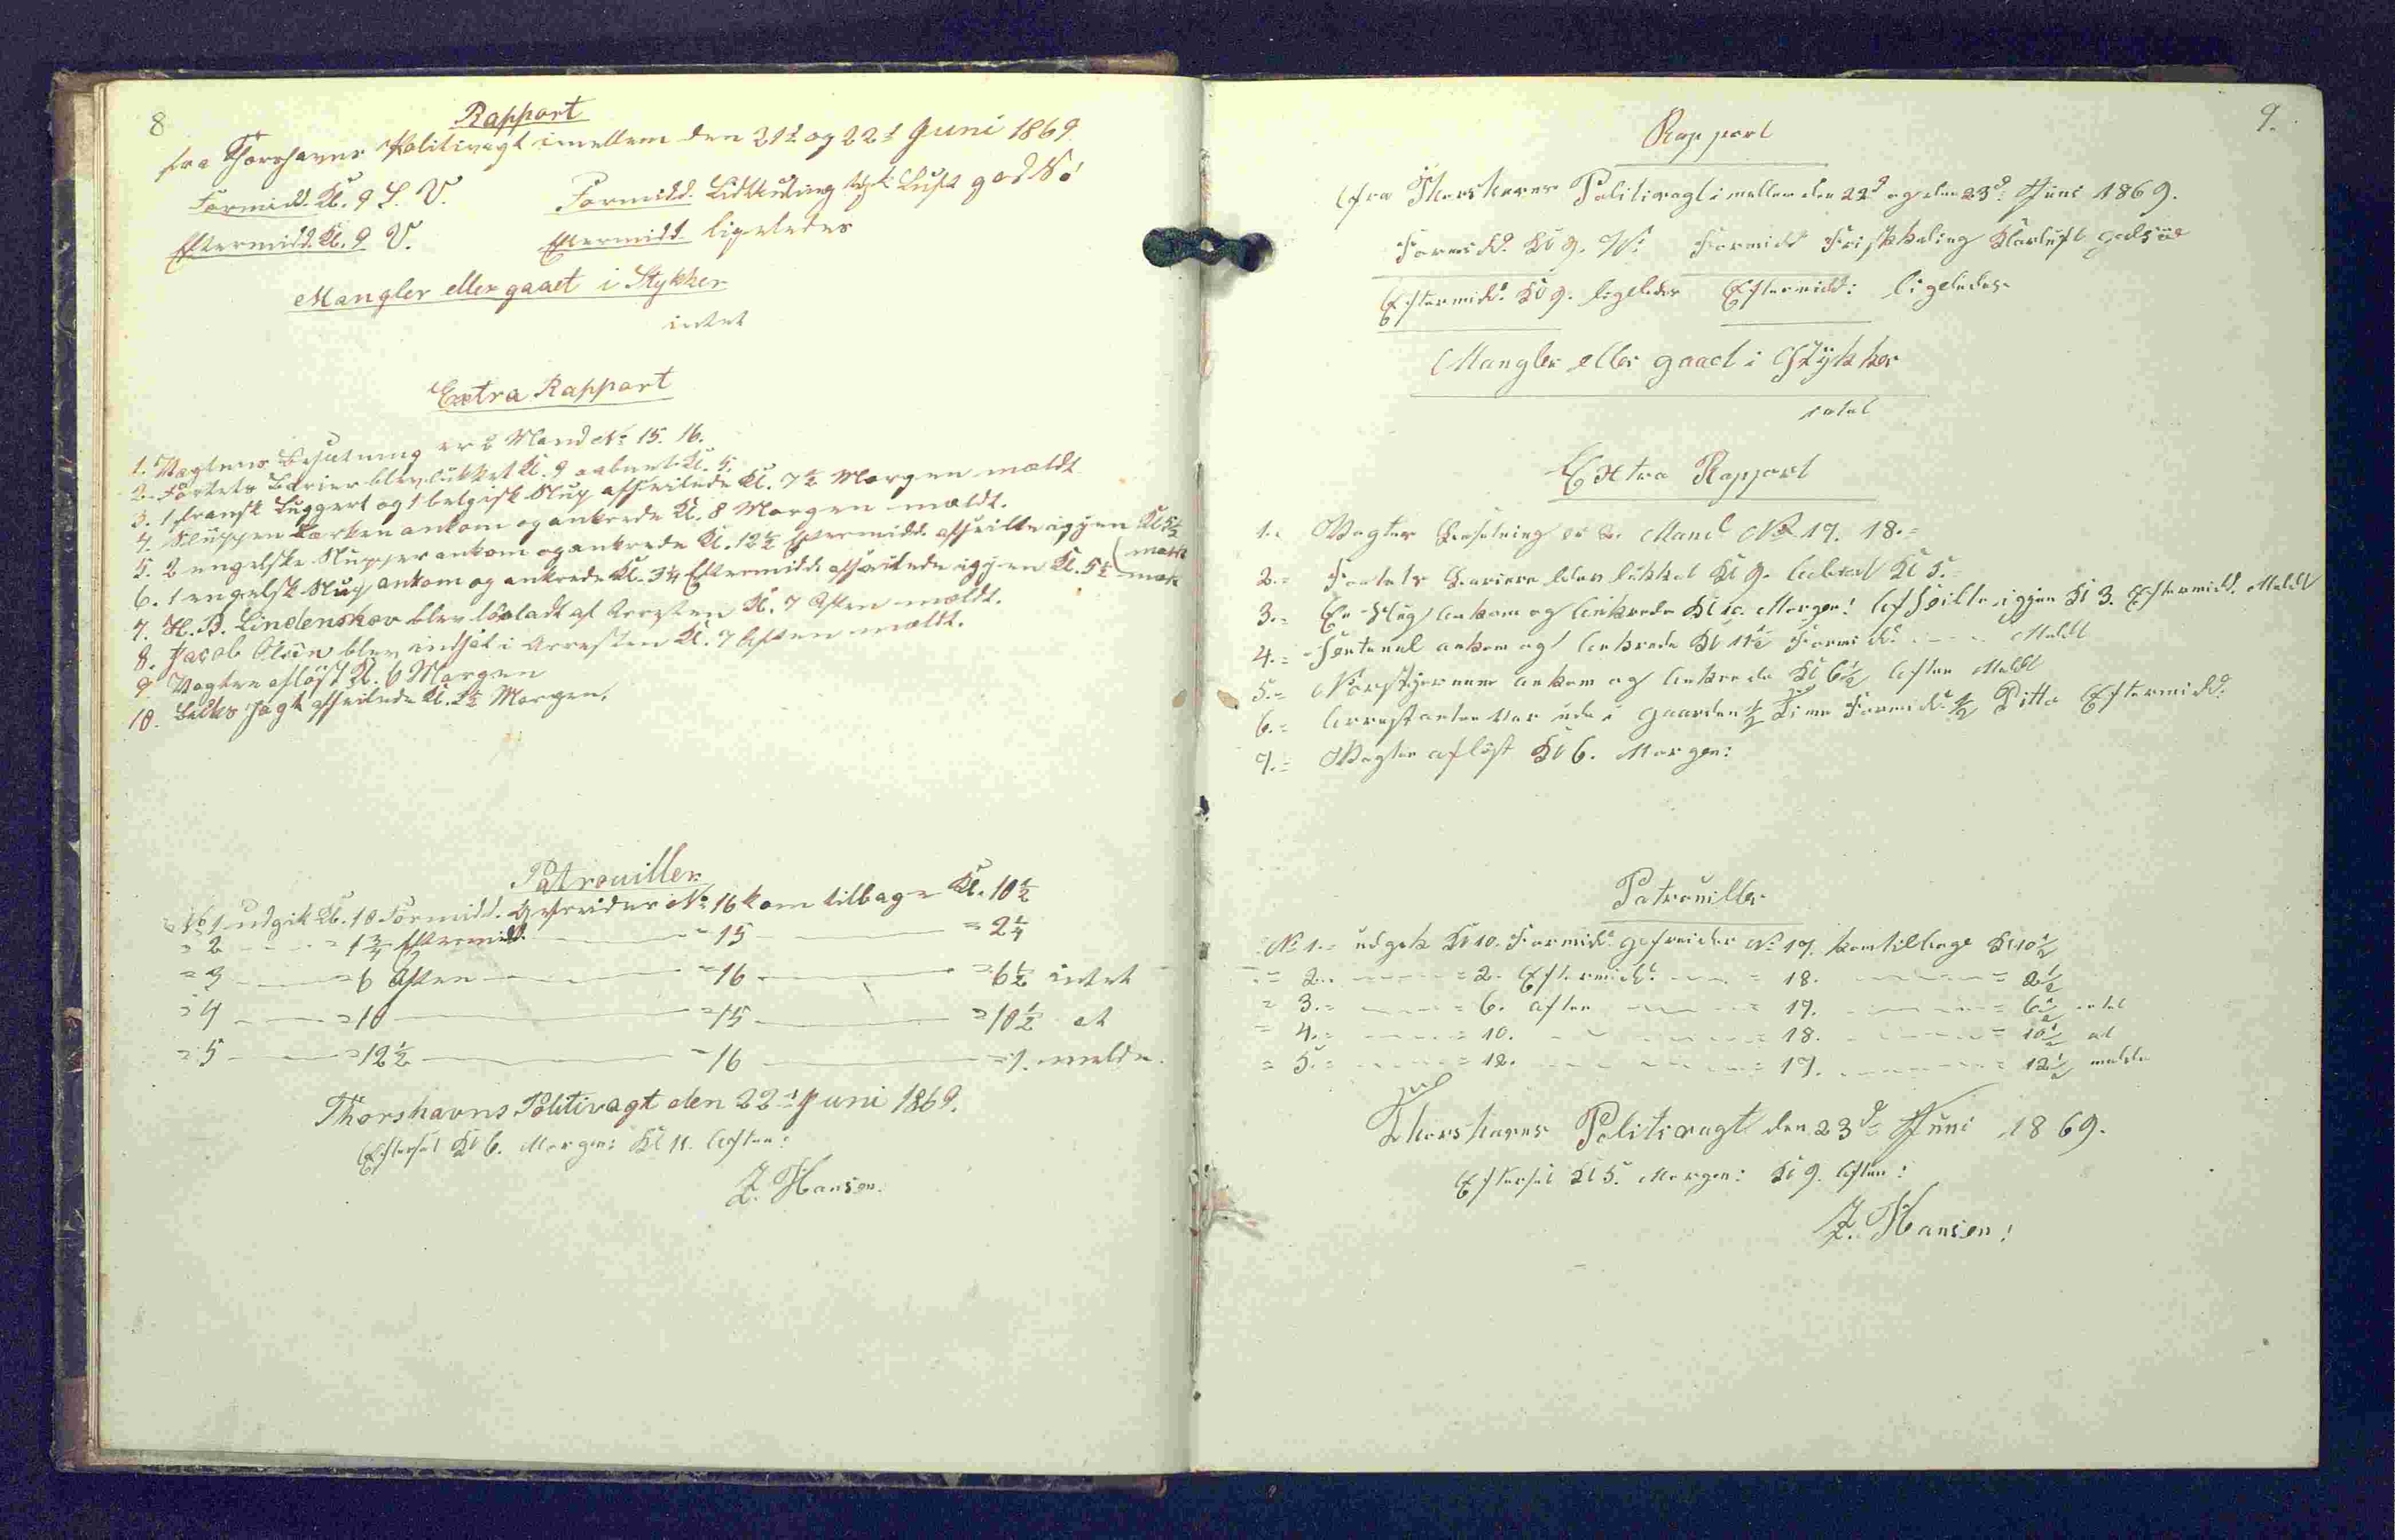 8
Rapport
fra Thorshavns Politivagt imellem den 21d og 22d Juni 1869
Formidd. Kl. 9 S. V. Formidd. Luft god Sø
Eftermidd. Kl. 9 V. Eftermidd. ligeledes
Mangler eller gaaet i Stykker
intet
Extra Rapport
1. Vagtens Besætning er 2 Mand No 15. 16.
2. Fortets Barier blev lukket Kl. 9 aabnet Kl. 5.
3. 1 fransk Luggert og 1 belgisk Slup afseilede Kl. 7½ Morgen mældt
4. Sluppen ankom og ankrede Kl. 8 Morgen mældt.
5. 2 engelske Slupper ankom og ankrede Kl. 12½ Eftermidd. afseilte igjen Kl 5½
6. 1 engelsk Slup ankom og ankrede Kl. 3¼ Eftermidd. afseilede igjen Kl. 5½ mældt
7. H. D. Lindenskov blev løsladt af Arresten Kl. 7 Aften mældt.
8. Jacob Olsen blev indsat i Arresten Kl. 7 Aften mældt.
9. Vagten afløst Kl. 6 Morgen
10. Jagt afseilede Kl. Morgen.
Patrouiller
No 1 udgik Kl. 10 Formidd. Gefreider No 16 kom tilbage Kl. 10½
= 2 — = 1¾ Eftermidd. — = 15 — = 2¼
= 3 — = 6 Aften — = 16 — = 6½ intet
= 4 — = 10 — = 15 — = 10½ at
= 5 — = 12½ — = 16 — = 1. melde.
Thorshavns Politivagt den 22d Juni 1869.
Efterset Kl 6. Morgen: Kl 11. Aften:
Z. Hansen.
9.
Rapport
fra Thorshavns Politivagt imellem den 22d og den 23d Juni 1869.
Formidd. Kl 9. V: Formidd Frisk Kuling Klarluft god Søe
Eftermidd. Kl 9. ligeledes Eftermidd: ligeledes
Mangler eller gaaet i Stykker
intet
Extra Rapport
1. Vagtens Besætning er 2. Mand No 17. 18.=
2.= Fortets Bariere blev lukket Kl 9. aabnet Kl 5.
3.= En Slup ankom og ankrede Kl 10. Morgen! Afseilte igjen Kl 3. Eftermidd. Meldt
4.= ankom og ankrede Kl 11½ Formidd. — Meldt
5.= Norstjernene ankom og ankrede Kl 6½ Aften Meldt
6.= Arrestanten var ude i Gaarden ½ Time Formidd. ½ Ditto Eftermidd:
7.= Vagten afløst Kl 6. Morgen:
Patrouiller
No 1.= udgik Kl 10. Formidd. Gefreider No 17. kom tilbage Kl 10½
= 2. — = 2. Eftermidd. — = 18. — = 2½
= 3.= — = 6. Aften — = 17. — = 6½ intet
= 4.= — = 10. — = 18. — = 10½ at
= 5.= — = 12. — = 17. — = 12½ melde
Thorshavns Politivagt den 23d Juni 1869.
Efterset Kl 5. Morgen: Kl 9. Aften:
Z. Hansen!